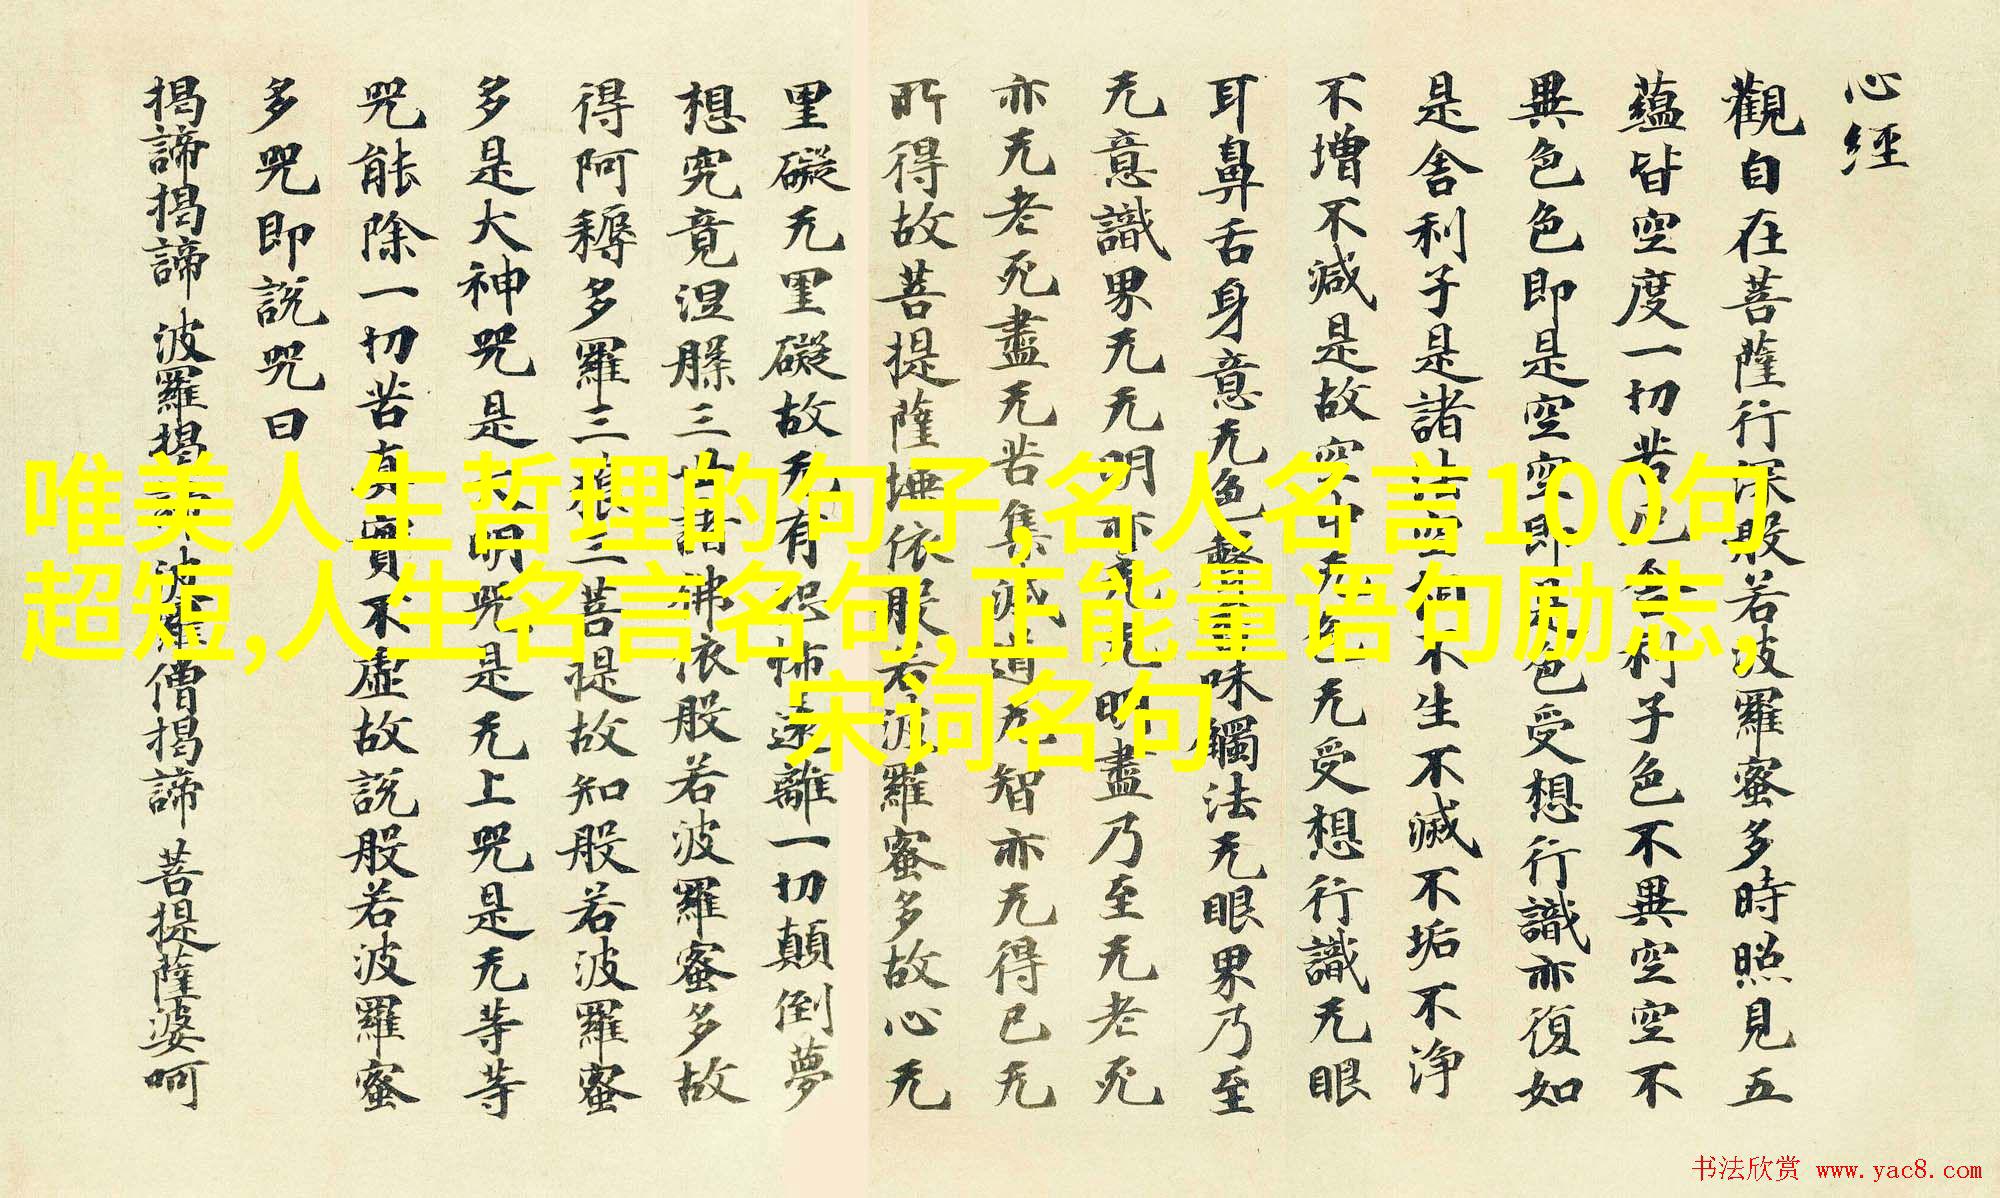 心經
觀自在菩薩行深般若波羅蜜多時照見五
蘊皆空度一切苦厄舍利子色不異空空不
異色色即是空空即是色受想行識亦復如
是舍利子是諸法空相不生不滅不垢不浄
不增不減是故空中无色无受想行識无眼
耳鼻舌身意无色聲香味觸法无眼界乃至
无意識界无无明亦无无明盡乃至无老死
亦无老死盡无苦集滅道无智亦无得已无
所得故菩提薩埵依般若波羅蜜多故心无
罣礙无罣礙故无有恐怖遠離一切顛倒夢
想究竟涅槃三世諸佛依般若波羅蜜多故
得阿耨多羅三藐三菩提故知般若波羅蜜
多是大神咒是大明咒是无上咒是无等等
咒能除一切苦真實不虛故說般若波羅蜜
多咒即說咒曰
揭諦揭諦 波羅揭諦 波羅僧揭諦 菩提薩婆呵
唯美人生哲理的句子,名人名言100句
超短,人生名言名句,正能量语句励志,
宋词名句
书法欣赏 www.yac8.com